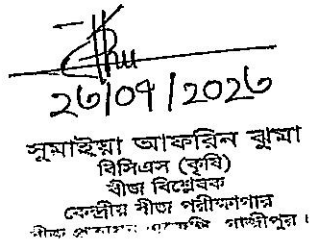 ২৬/০৭/২০২৬
সুমাইয়া আফরিন ঝুমা
বিসিএস (কৃষি)
বীজ বিশ্লেষক
কেন্দ্রীয় বীজ পরীক্ষাগার
বীজ প্রত্যয়ন এজেন্সি, গাজীপুর।